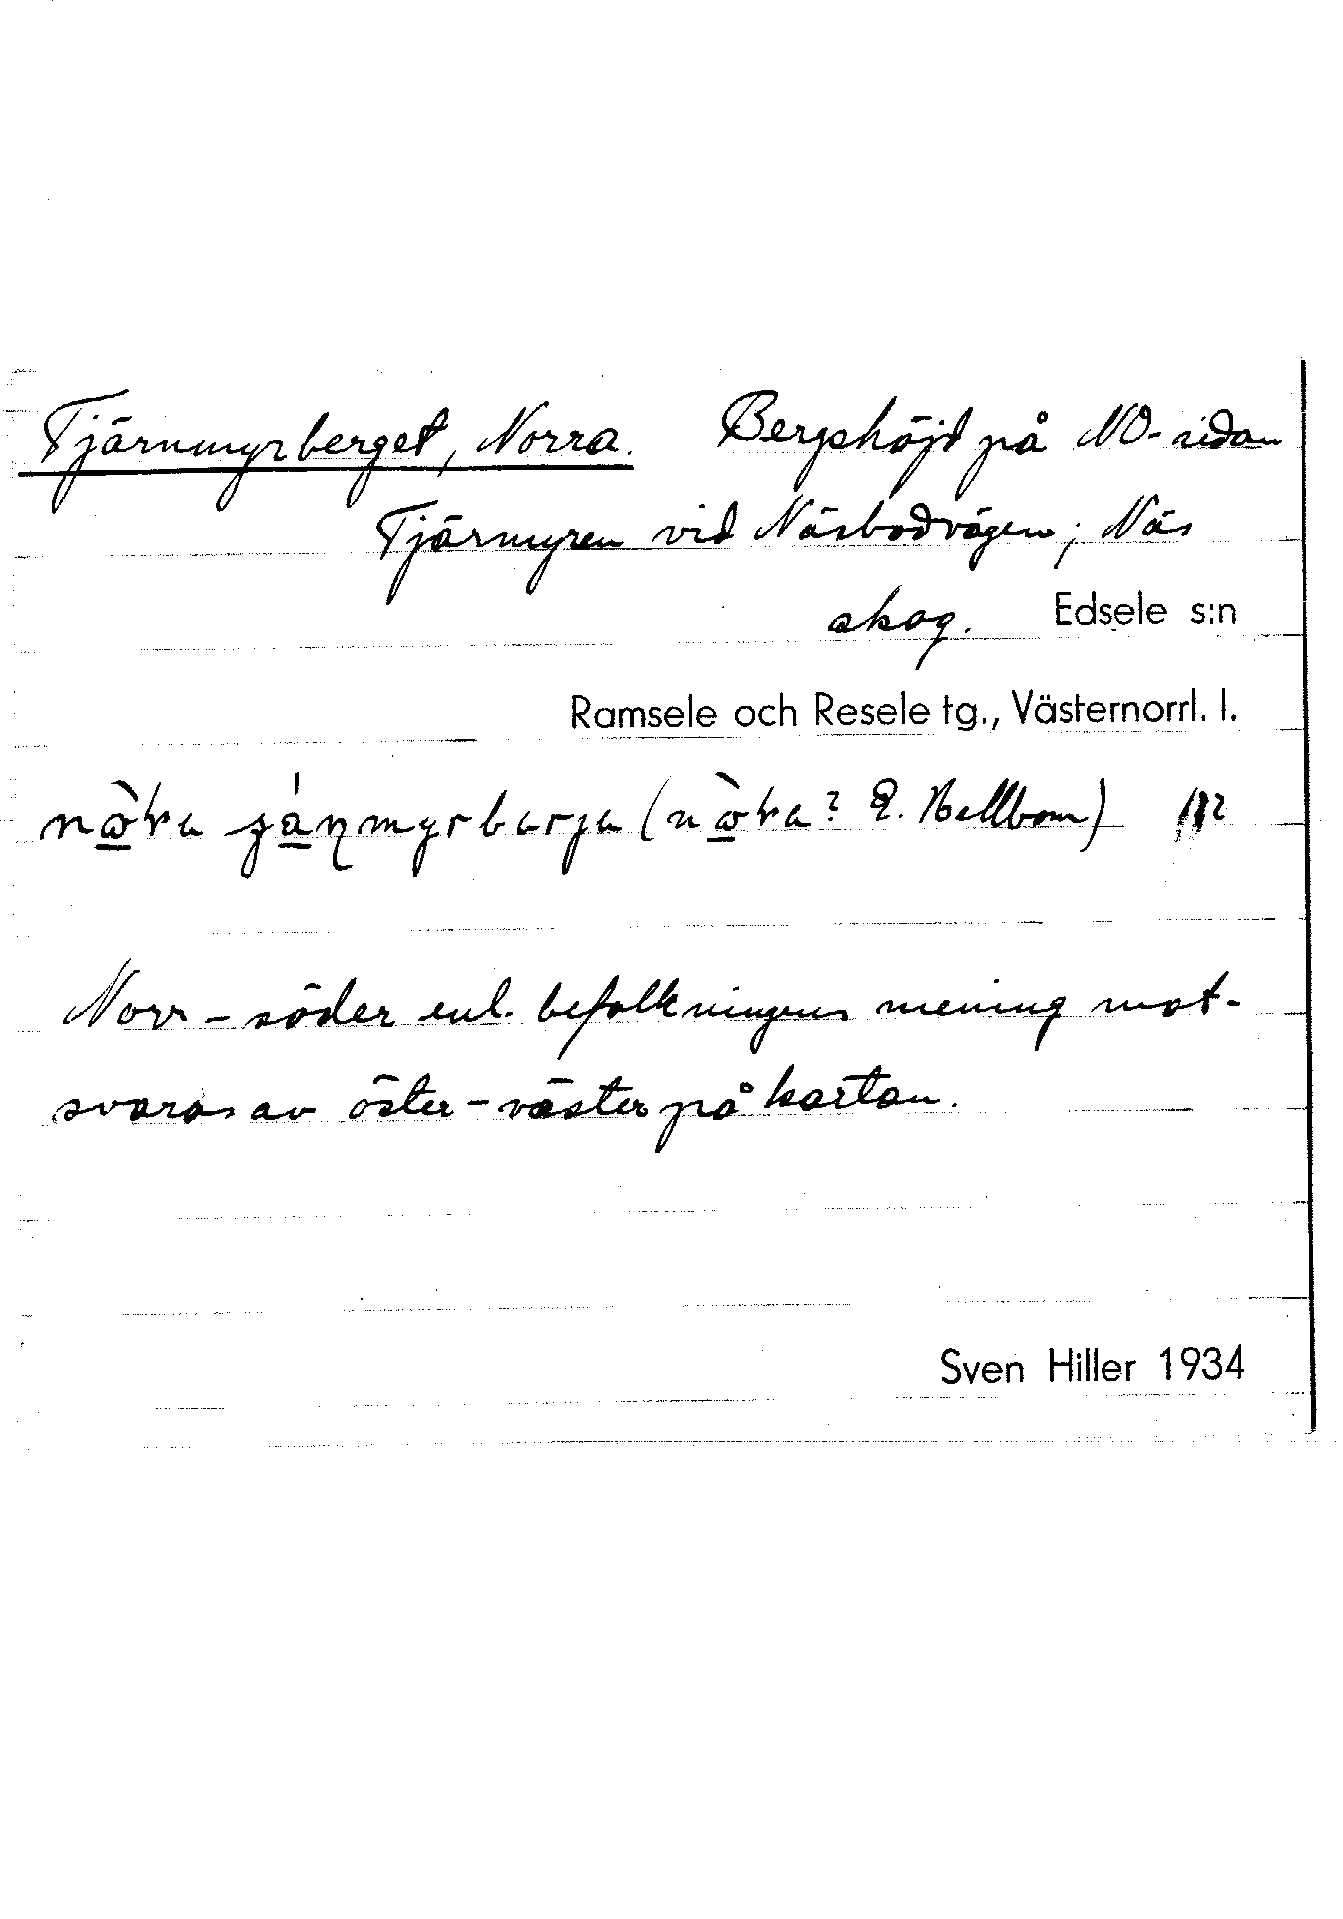 Tjärnmyrberget, Norra. Bergshöjd på NO-sidan
Tjärmyren vid Näsbodvägen; Näs
skog. Edsele s:n
Ramsele och Resele tg., Västernorrl. l.
(nø̀ra? E. Hellbom)
Norr – söder enl. befolkningens mening mot-
svaras av öster – väster på kartan.
Sven Hiller 1934